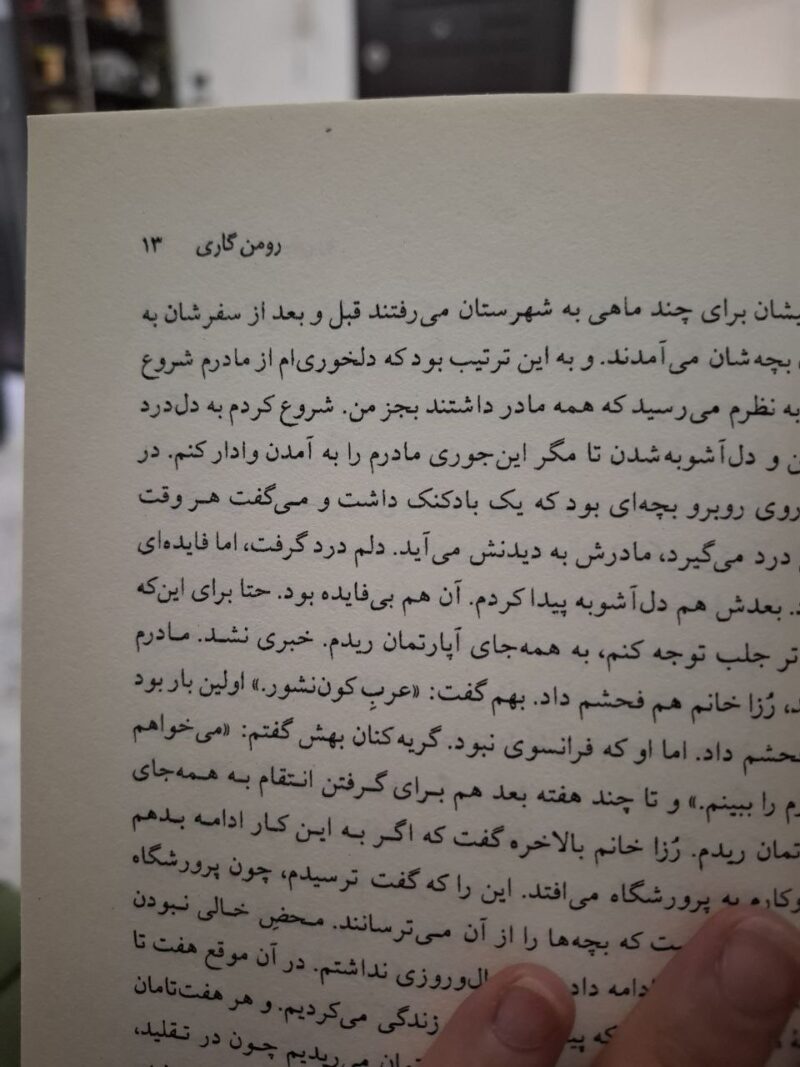 رومن گاری ۱۳
برای چند ماهی به شهرستان می‌رفتند قبل و بعد از سفرشان به
بچه‌شان می‌آمدند. و به این ترتیب بود که دلخوری‌ام از مادرم شروع
به نظرم می‌رسید که همه مادر داشتند بجز من. شروع کردم به دل‌درد
و دل‌آشوبه‌شدن تا مگر این‌جوری مادرم را به آمدن وادار کنم. در
روی روبرو بچه‌ای بود که یک بادکنک داشت و می‌گفت هر وقت
درد می‌گیرد، مادرش به دیدنش می‌آید. دلم درد گرفت، اما فایده‌ای
بعدش هم دل‌آشوبه پیدا کردم. آن هم بی‌فایده بود. حتا برای این‌که
تر جلب توجه کنم، به همه‌جای آپارتمان ریدم. خبری نشد. مادرم
رُزا خانم هم فحشم داد. بهم گفت: «عربِ کون‌نشور.» اولین بار بود
فحشم داد. اما او که فرانسوی نبود. گریه‌کنان بهش گفتم: «می‌خواهم
را ببینم.» و تا چند هفته بعد هم برای گرفتن انتقام به همه‌جای
ریدم. رُزا خانم بالاخره گفت که اگر به این کار ادامه بدهم
به پرورشگاه می‌افتد. این را که گفت ترسیدم، چون پرورشگاه
که بچه‌ها را از آن می‌ترسانند. محضِ خالی نبودن
ادامه نداشتم. در آن موقع هفت تا
که زندگی می‌کردیم. و هر هفت‌تامان
می‌ریدیم چون در تقلید،